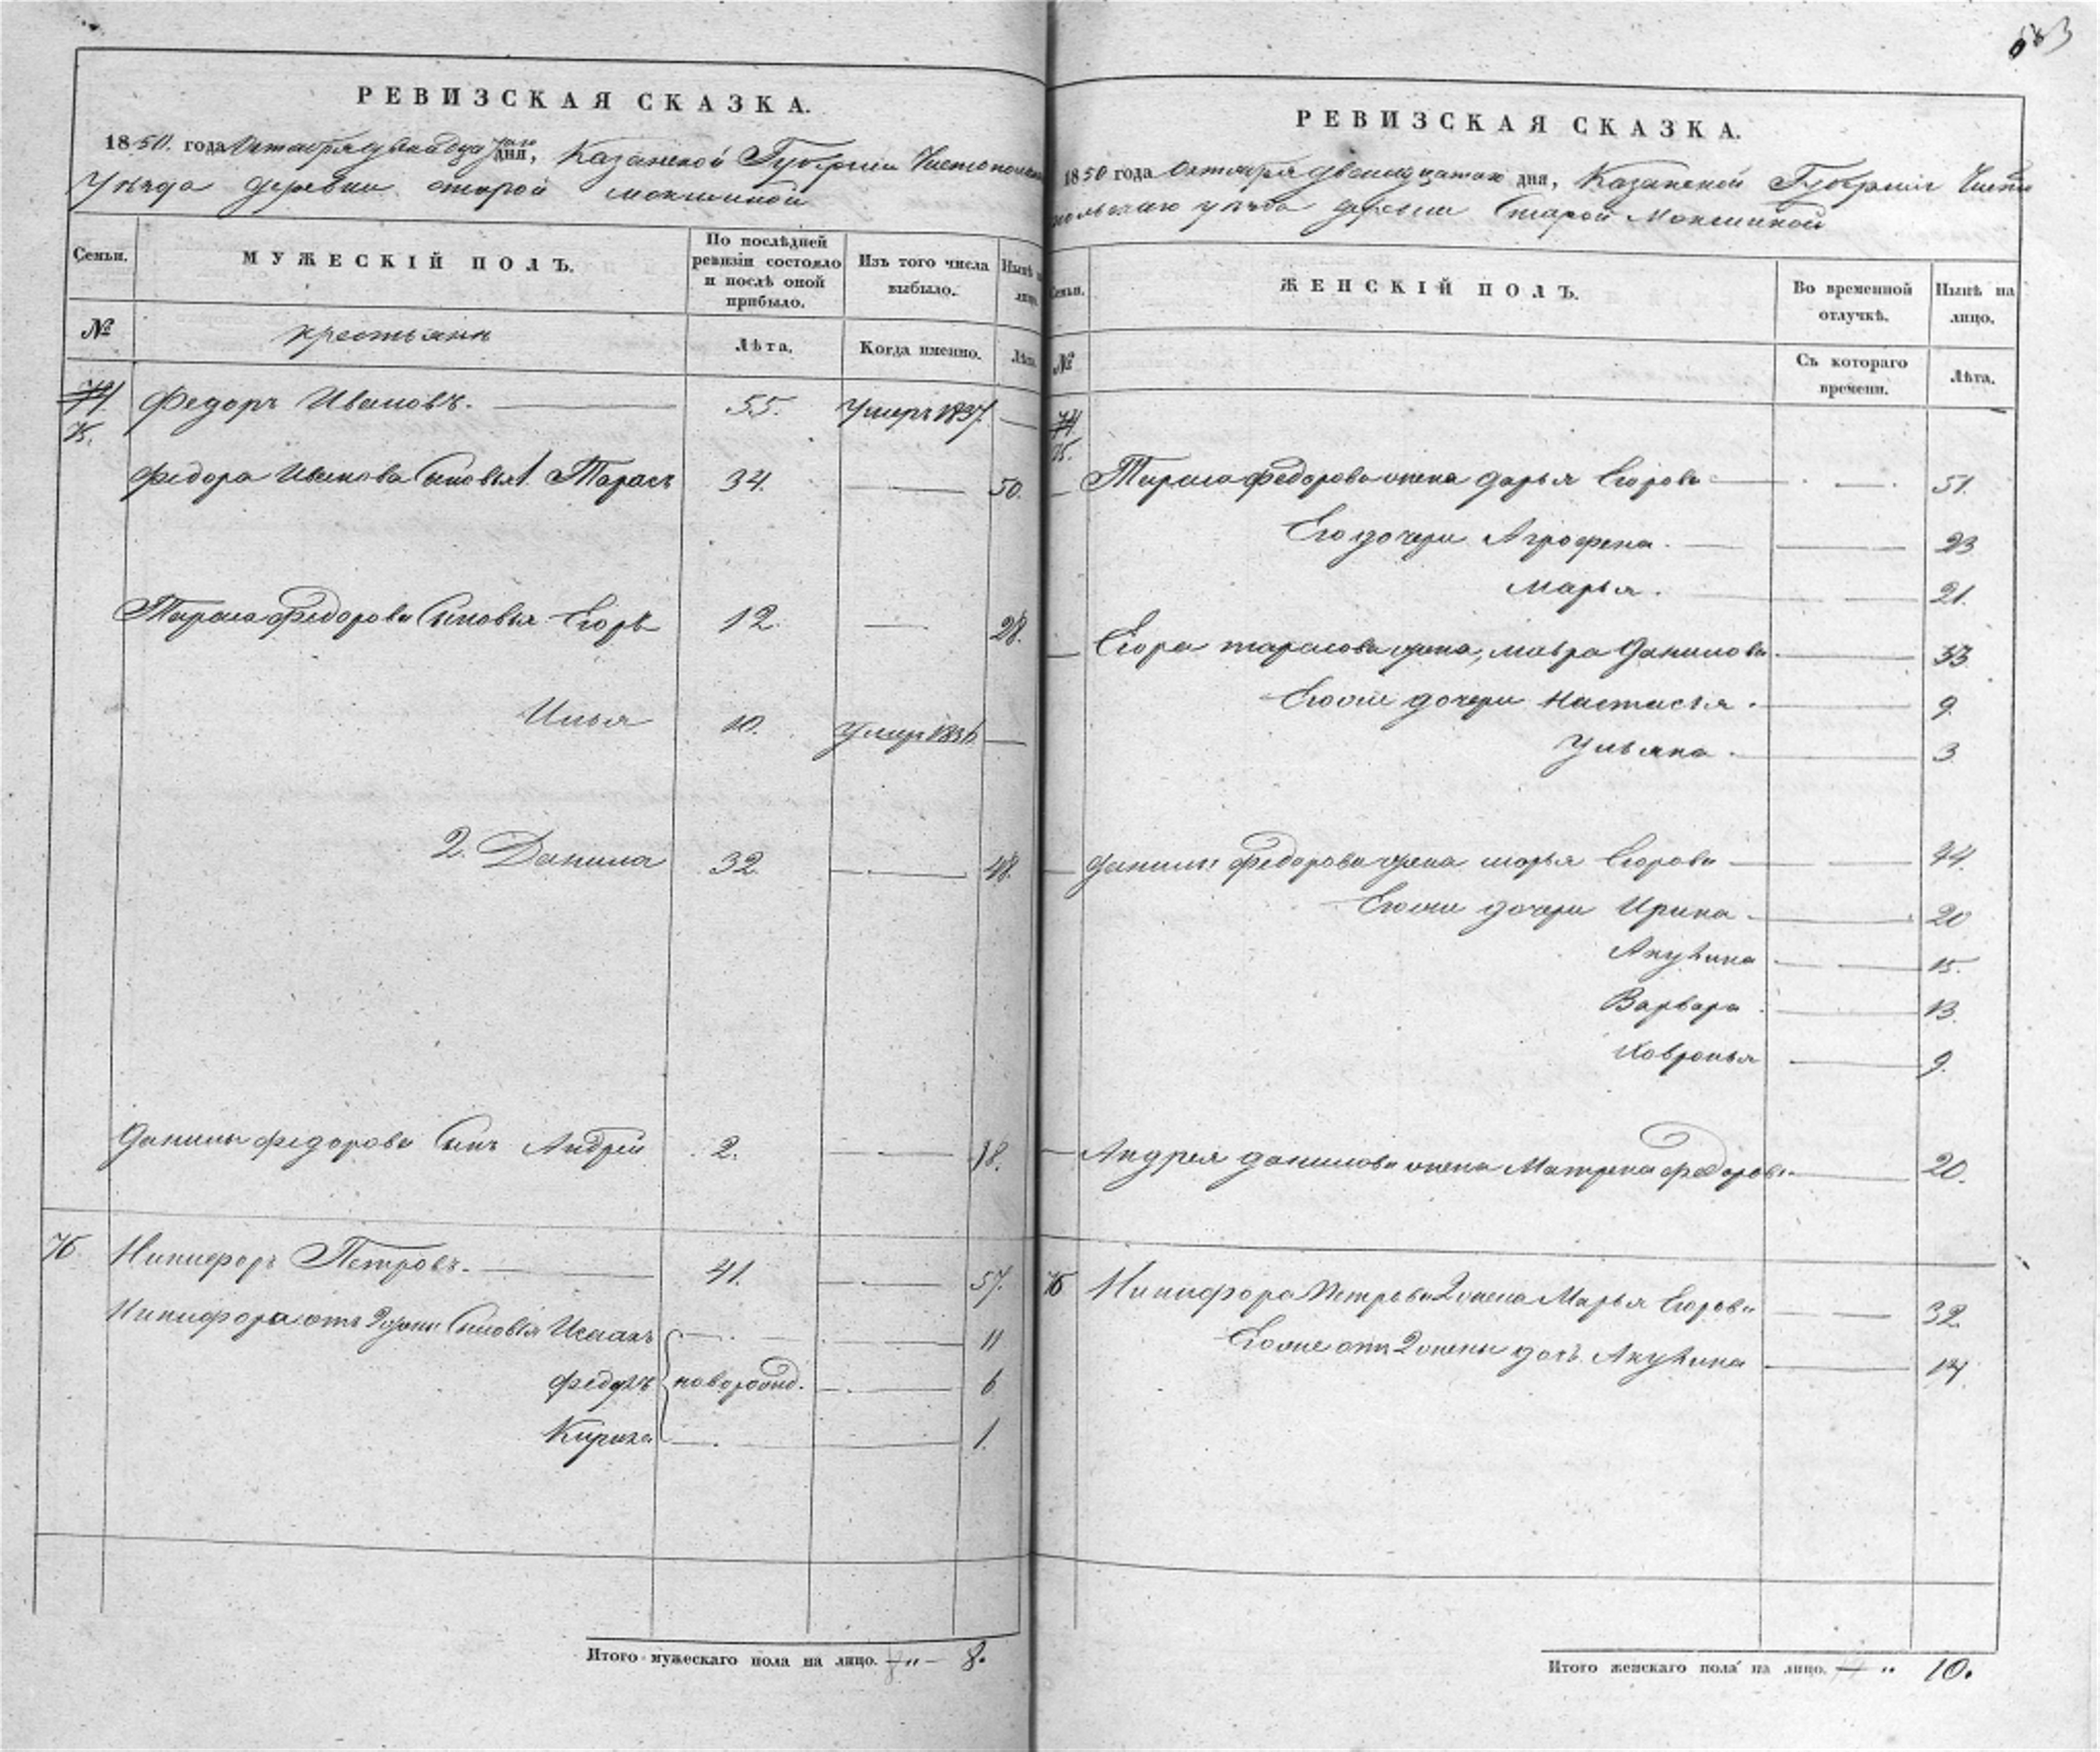 РЕВИЗСКАЯ СКАЗКА.
1850. года Октября двенадца таго дня, Казанской Губернiи Чистополь
Уѣзда деревни старой мокшиной
Семьи.
МУЖЕСКIЙ ПОЛЪ.
По послѣдней ревизiи состояло и послѣ оной прибыло.
Изъ того числа выбыло.
Нынѣ на лицо.
№
крестьяне
Лѣта.
Когда именно.
Лѣта.
74.
75.
Федоръ Ивановъ. 55. Умеръ 1837.
Федора Иванова Сыновья 1. Тарасъ 34. 50.
Тараса Федорова Сыновья Егоръ 12. 28.
Илья 10. Умер 1836
2. Данила 32. 48.
Данилы Федорова Сынъ Андрей 2. 18.
76 Никифоръ Петровъ. 41. 57.
Никифора отъ 2й жены Сыновья Исаакъ 11
Федулъ новорожд. 6
Кирила 1.
Итого мужескаго пола на лицо. „ 8.
РЕВИЗСКАЯ СКАЗКА.
1850 года октября двенадцатаго дня, Казанской Губернiи Чисто
польскаго уѣзда деревни Старой Мокшиной
Семьи.
ЖЕНСКIЙ ПОЛЪ.
Во временной отлучкѣ.
Нынѣ на лицо.
№
Съ котораго времени.
Лѣта.
74.
75.
Тараса Федорова жена Дарья Егорова 51.
Его дочери Агрофена. 23
Марья. 21.
Егора тарасова жена, мавра Данилова. 33
Егоже дочери Настасья. 9.
Ульяна. 3
Данилы Федорова жена марья Егорова 44.
Егоже дочери Ирина. 20
Акулина 15.
Варвара 13.
Ховронья 9.
Андрея данилова жена Матрена Федорова 20.
76 Никифора Петрова 2 жена Марья Егорова 32.
Егоже отъ 2 жены дочь Акулина 14.
Итого женскаго пола на лицо. „ 10.